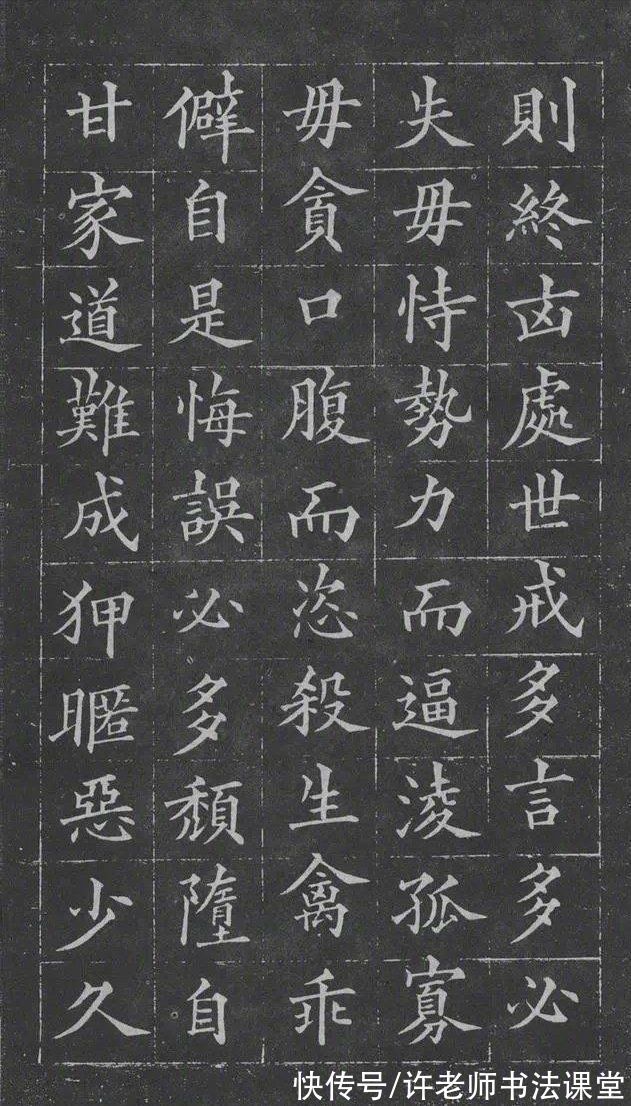 則終凶處世戒多言多必
失毋恃勢力而逼淩孤寡
毋貪口腹而恣殺生禽乖
僻自是悔誤必多頹墮自
甘家道難成狎暱惡少久
快传号/许老师书法课堂